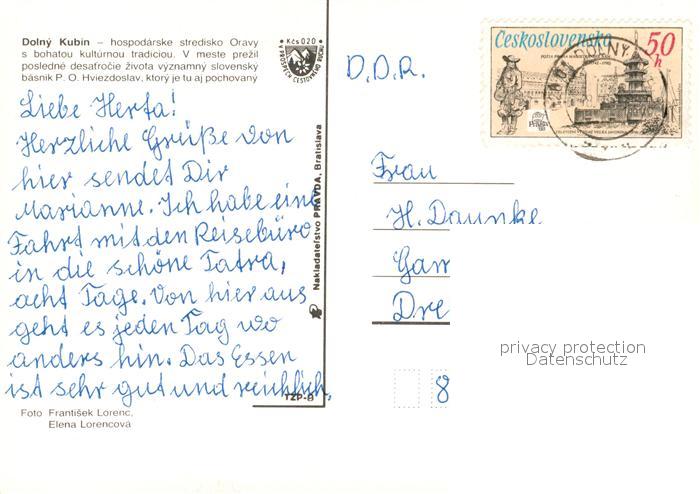 Dolný Kubín – hospodárske stredisko Oravy
s bohatou kultúrnou tradíciou. V meste prežil
posledné desaťročie života významný slovenský
básnik P. O. Hviezdoslav, ktorý je tu aj pochovaný
Kčs 0.20
V PROSPECH CESTOVNÉHO RUCHU
Liebe Herta!
Herzliche Grüße von
hier sendet Dir
Marianne. Ich habe eine
Fahrt mit den Reisebüro
in die schöne Tatra,
acht Tage. Von hier aus
geht es jeden Tag wo
anders hin. Das Essen
ist sehr gut und reichlich.
TZP-B
Foto František Lorenc,
Elena Lorencová
Nakladateľstvo PRAVDA, Bratislava
D.D.R.
Československo
50
h
DOLNÝ
Frau
H. Daunke
Gar
Dre
8
privacy protection
Datenschutz